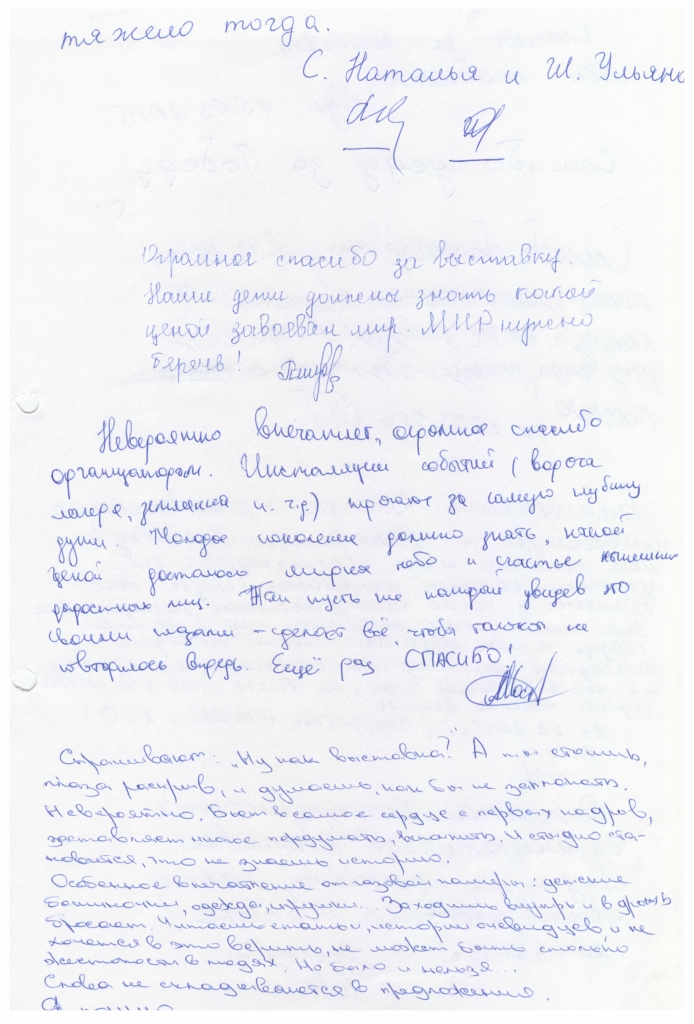 тяжело тогда.
С. Наталья и Ш. Ульяна
Огромное спасибо за выставку.
Наши дети должны знать какой
ценой завоёван мир. МИР нужно
беречь!
Невероятно впечатляет, огромное спасибо
организаторам. Инсталляции событий (ворота
лагеря, землянка и т.д.) трогают за самую глубину
души. Молодое поколение должно знать, какой
ценой досталось мирное небо и счастье нынешних
радостных лиц. Так пусть же каждый увидев это
своими глазами – сделает всё, чтобы такого не
повторилось впредь. Ещё раз СПАСИБО!
Спрашивают: „Ну как выставка?" А ты стоишь,
глаза раскрыв, и думаешь, как бы не заплакать.
Невероятно. Бьёт в самое сердце с первых кадров,
заставляет многое передумать, вспомнить. И стыдно ста-
новится, что не знаешь историю.
Особенное впечатление от газовой камеры: детские
ботиночки, одежда, игрушки... Заходишь внутрь и в дрожь
бросает. Читаешь статьи, истории очевидцев, и не
хочется в это верить, не может быть столько
жестокости в людях. Но было и нельзя...
Слова не складываются в предложения.